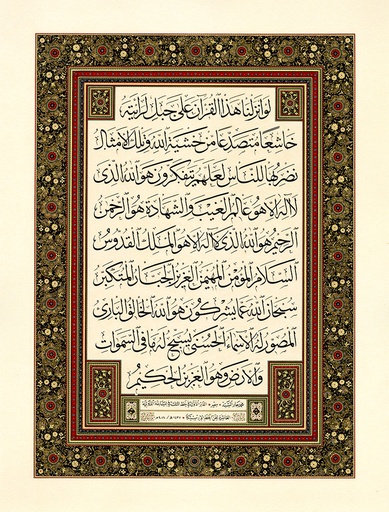 لو انزلنا هذا القرآن على جبل لرأيته
خاشعا متصدعا من خشية الله وتلك الامثال
نضربها للناس لعلهم يتفكرون هو الله الذى
لا اله الا هو عالم الغيب والشهادة هو الرحمن
الرحيم هو الله الذى لا اله الا هو الملك القدوس
السلام المؤمن المهيمن العزيز الجبار المتكبر
سبحان الله عما يشركون هو الله الخالق البارئ
المصور له الاسماء الحسنى يسبح له ما فى السموات
والارض وهو العزيز الحكيم